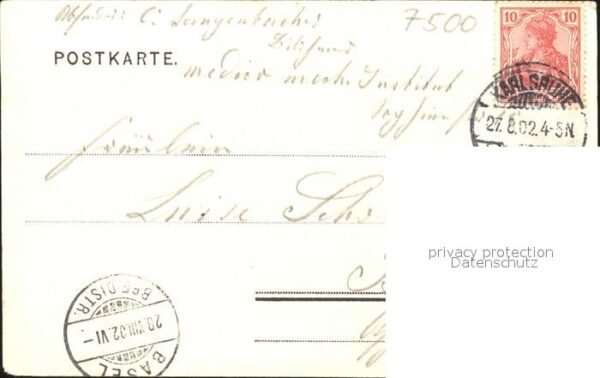 Absender C. Langenbacher
7500
10 10
POSTKARTE.
medico mech. Institut
KARLSRUHE
27.8.02.4-5N.
Fräulein
Luise Sch
privacy protection
Datenschutz
BRF.DISTR.
28.VIII.02.VI-
BASEL